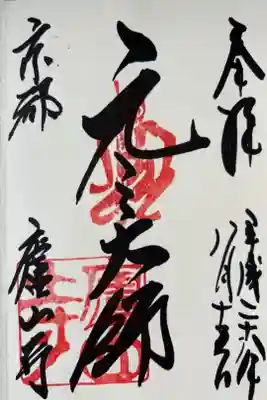 奉拝
平成二十六年
八月十五日
元三大師
京都
廬山寺